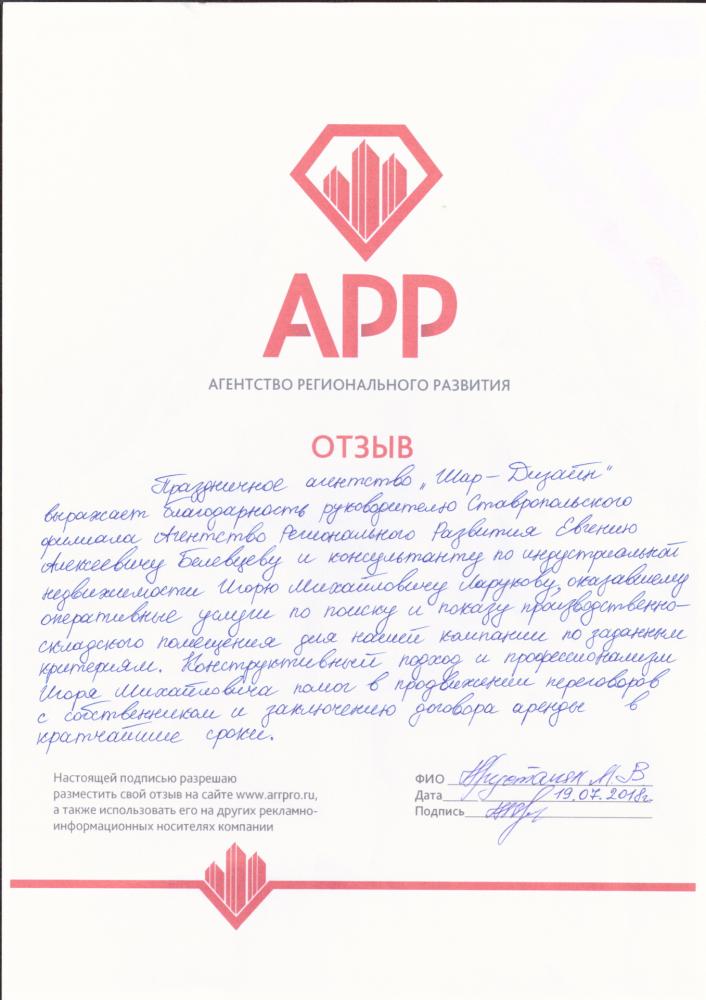 АРР
АГЕНТСТВО РЕГИОНАЛЬНОГО РАЗВИТИЯ
ОТЗЫВ
Праздничное агентство „Шар-Дизайн"
выражает благодарность руководителю Ставропольского
филиала Агентство Регионального Развития Евгению
Алексеевичу Белевцеву и консультанту по индустриальной
недвижимости Игорю Михайловичу Ларукову, оказавшему
оперативные услуги по поиску и показу производственно-
складского помещения для нашей компании по заданным
критериям. Конструктивный подход и профессионализм
Игоря Михайловича помог в продвижении переговоров
с собственником и заключению договора аренды в
кратчайшие сроки.
Настоящей подписью разрешаю
разместить свой отзыв на сайте www.arrpro.ru,
а также использовать его на других рекламно-
информационных носителях компании
ФИО М. В
Дата 19.07.2018г
Подпись